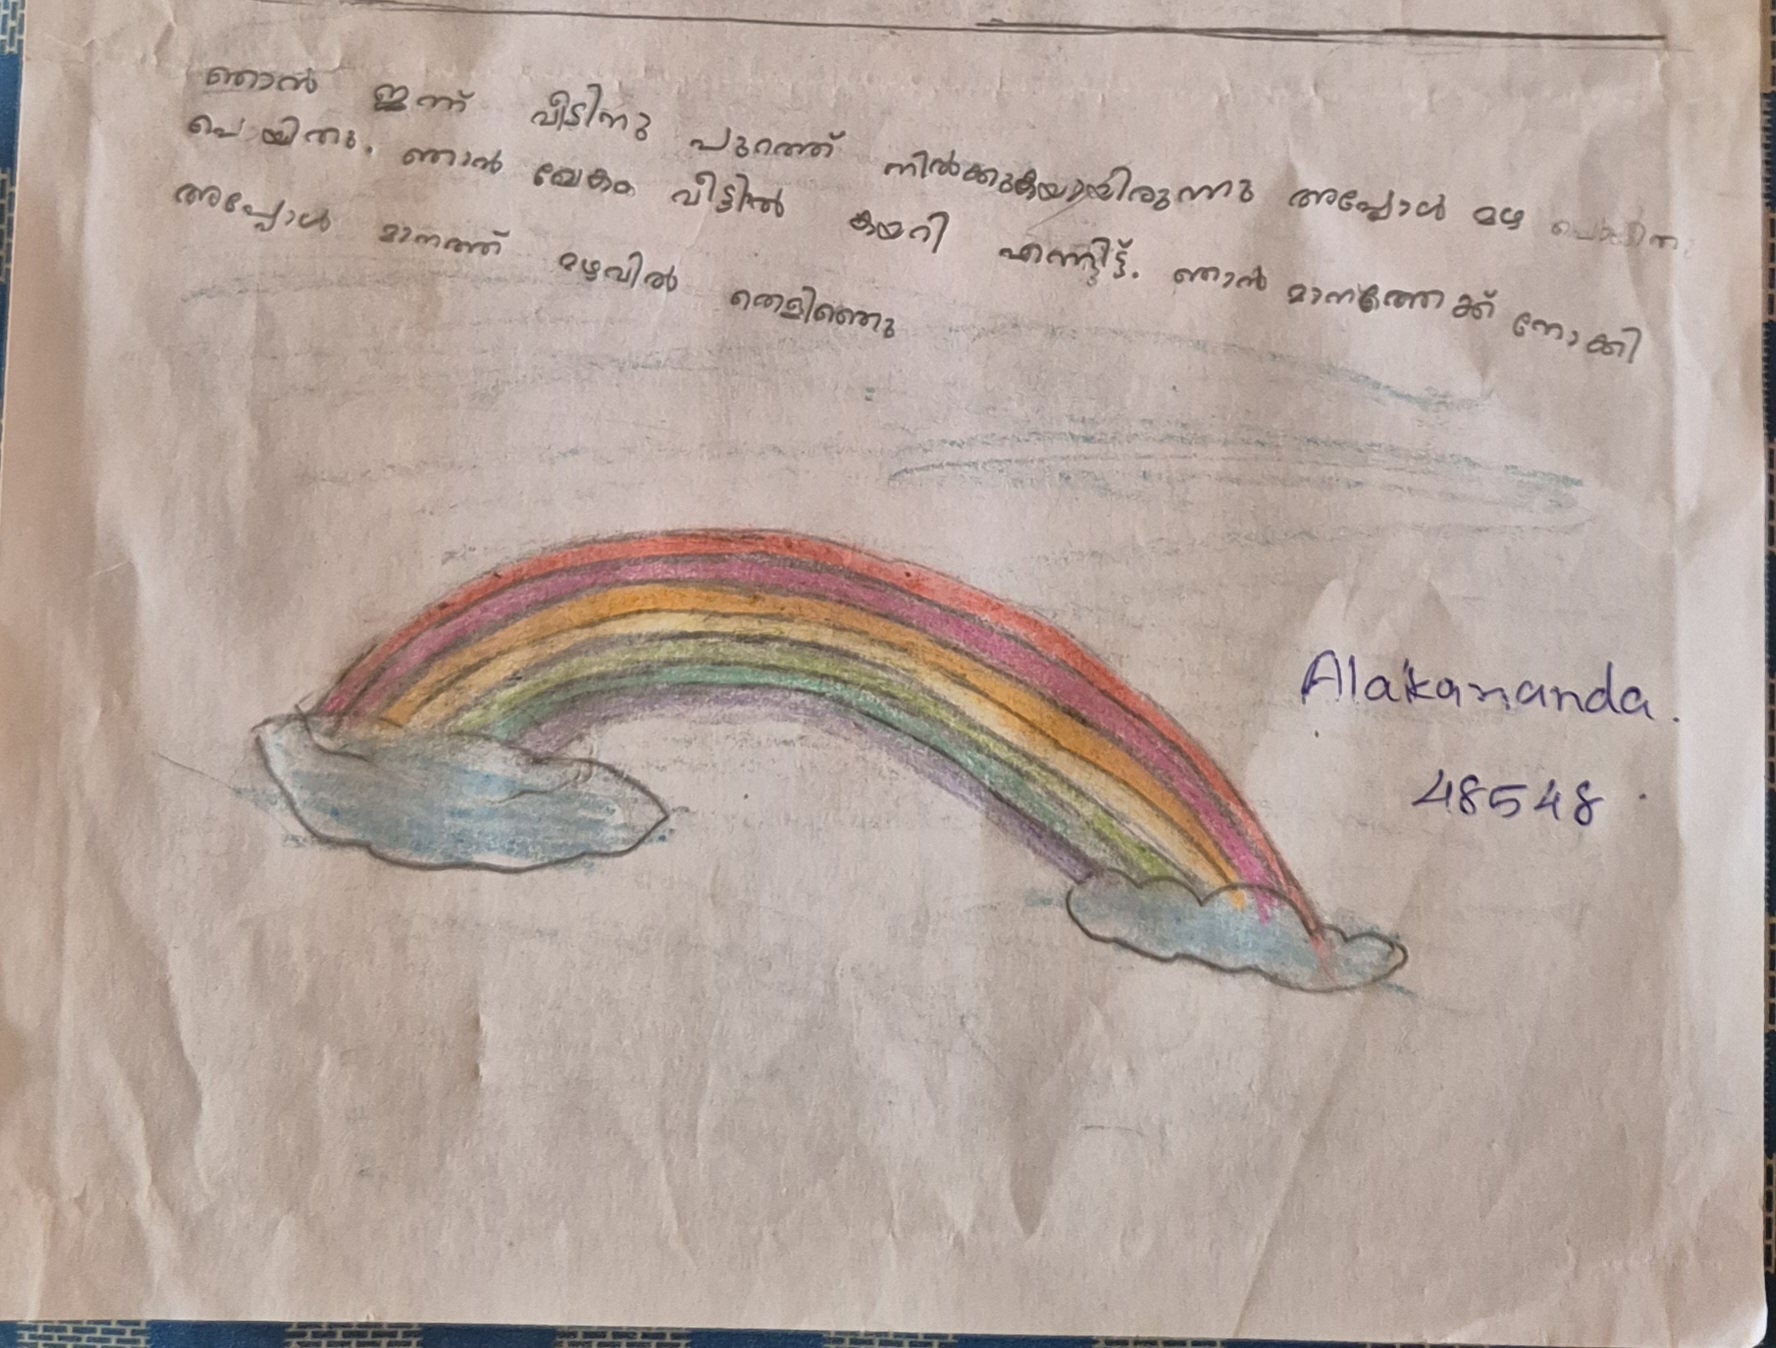 ഞാൻ ഇന്ന് വീടിനു പുറത്ത് നിൽക്കുകയായിരുന്നു അപ്പോൾ മഴ
പെയിതു. ഞാൻ വേകം വീട്ടിൽ കയറി എന്നിട്ട്. ഞാൻ മാനത്തേക്ക് നോക്കി
അപ്പോൾ മാനത്ത് മഴവിൽ തെളിഞ്ഞു
Alakananda.
48548.